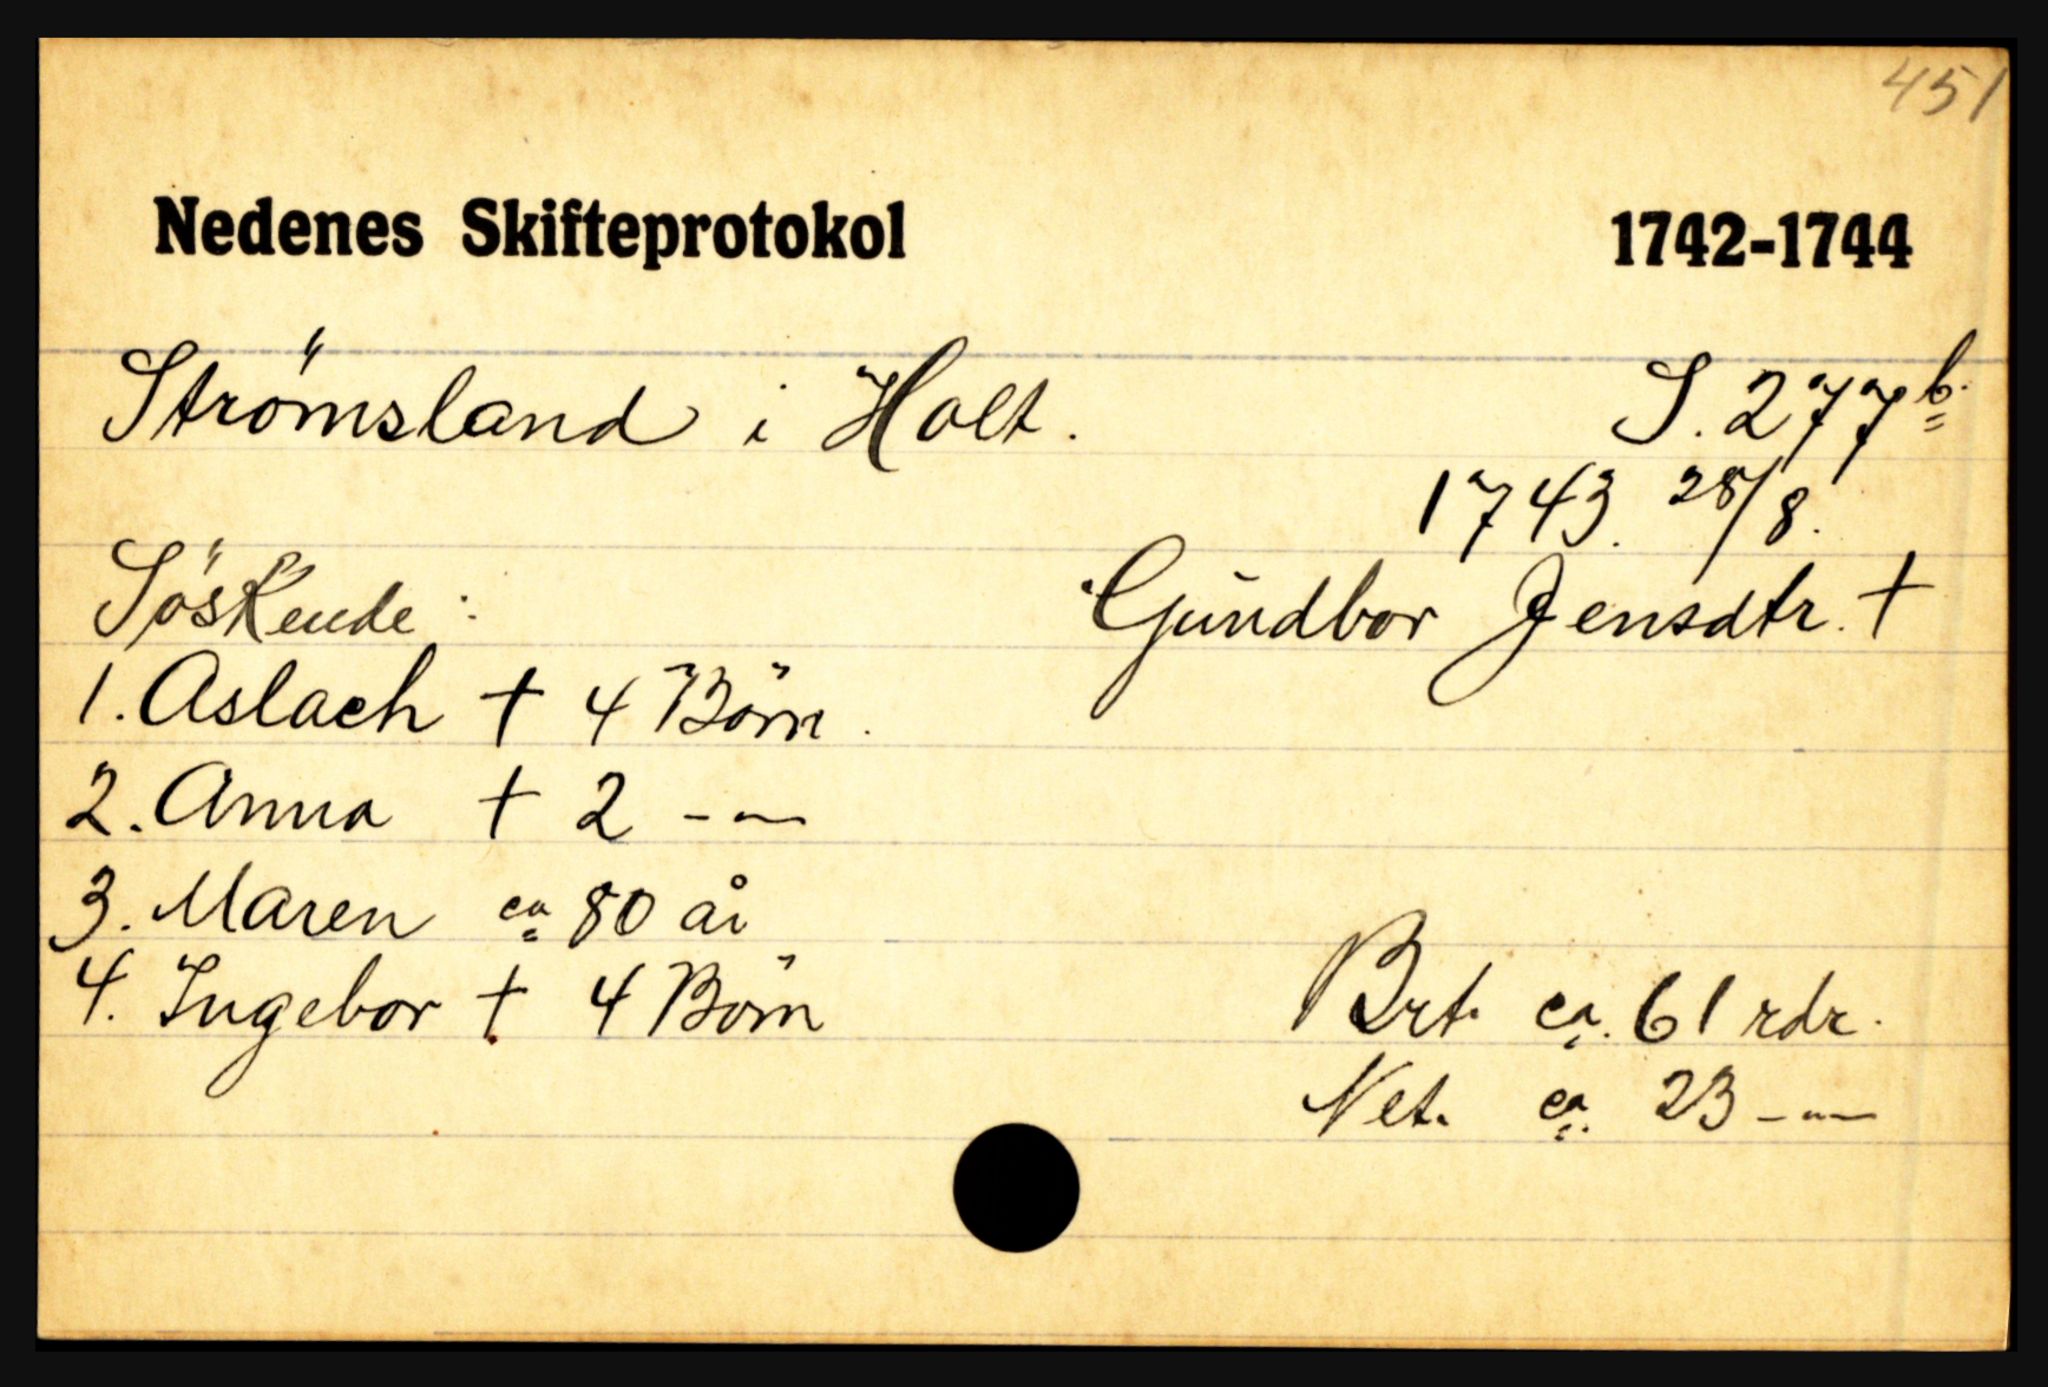 451
Nedenes Skifteprotokol 1742-1744
Strömsland i Holt. S. 277b.
1743. 28/8.
Söskende: Gundbor Jensdtr. †
1. Aslach † 4 Börn.
2. Anna † 2 -"-
3. Maren ca 80 år
4. Ingebor † 4 Börn
Brt. ca. 61 rdr.
Net. ca. 23 -"-